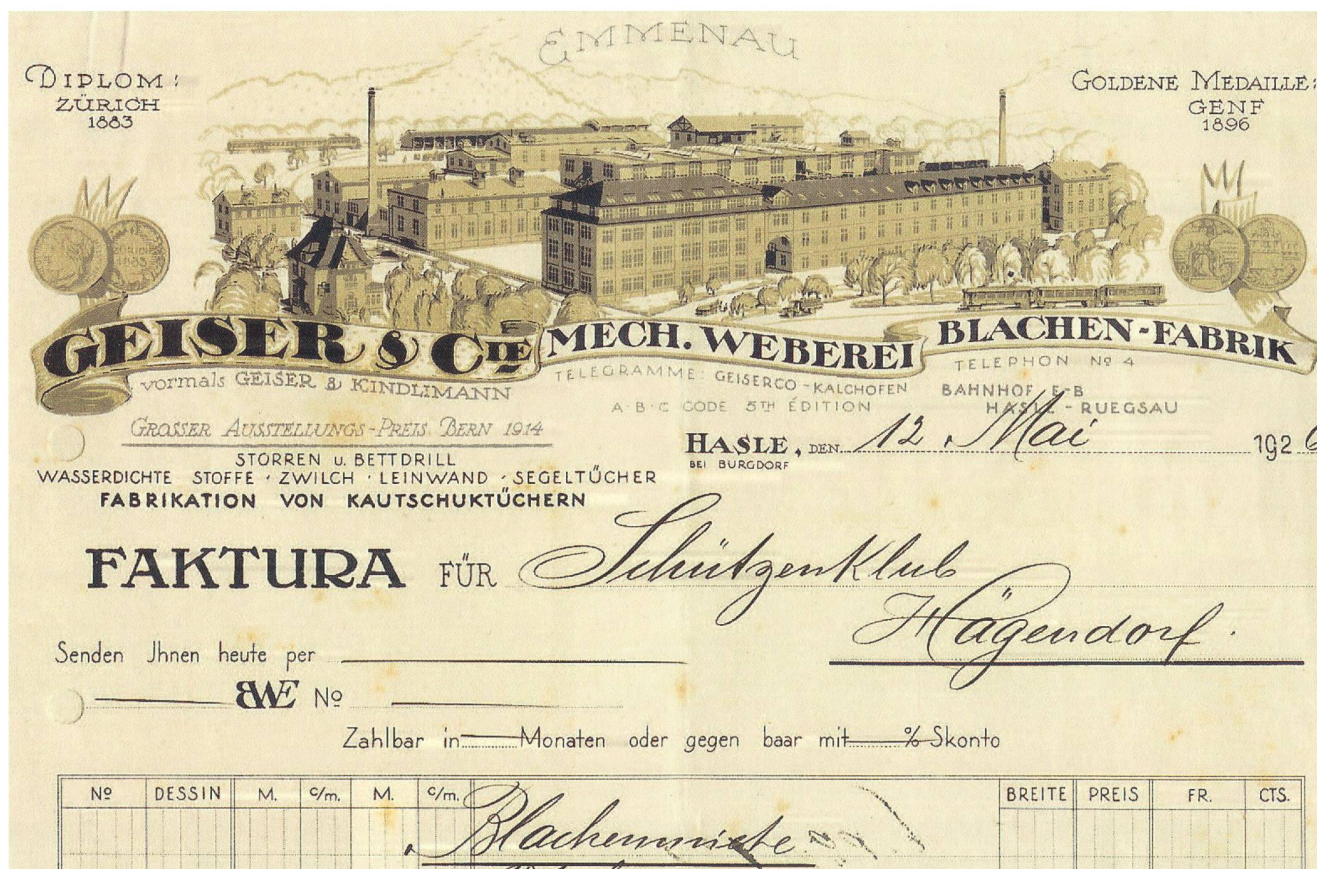 EMMENAU
DIPLOM:
ZÜRICH
1883
GOLDENE MEDAILLE:
GENF
1896
GEISER & CIE MECH. WEBEREI BLACHEN-FABRIK
vormals GEISER & KINDLIMANN
TELEGRAMME: GEISERCO-KALCHOFEN
A·B·C CODE 5TH ÉDITION
TELEPHON No 4
BAHNHOF E-B
HASLE-RUEGSAU
GROSSER AUSSTELLUNGS-PREIS BERN 1914
HASLE, DEN 12. Mai 1926
BEI BURGDORF
STORREN U. BETTDRILL
WASSERDICHTE STOFFE · ZWILCH · LEINWAND · SEGELTÜCHER
FABRIKATION VON KAUTSCHUKTÜCHERN
FAKTURA FÜR Schützenklub
Hägendorf.
Senden Ihnen heute per
BWE No
Zahlbar in Monaten oder gegen baar mit % Skonto
No DESSIN M. c/m. M. c/m. BREITE PREIS FR. CTS.
Blachenmiete